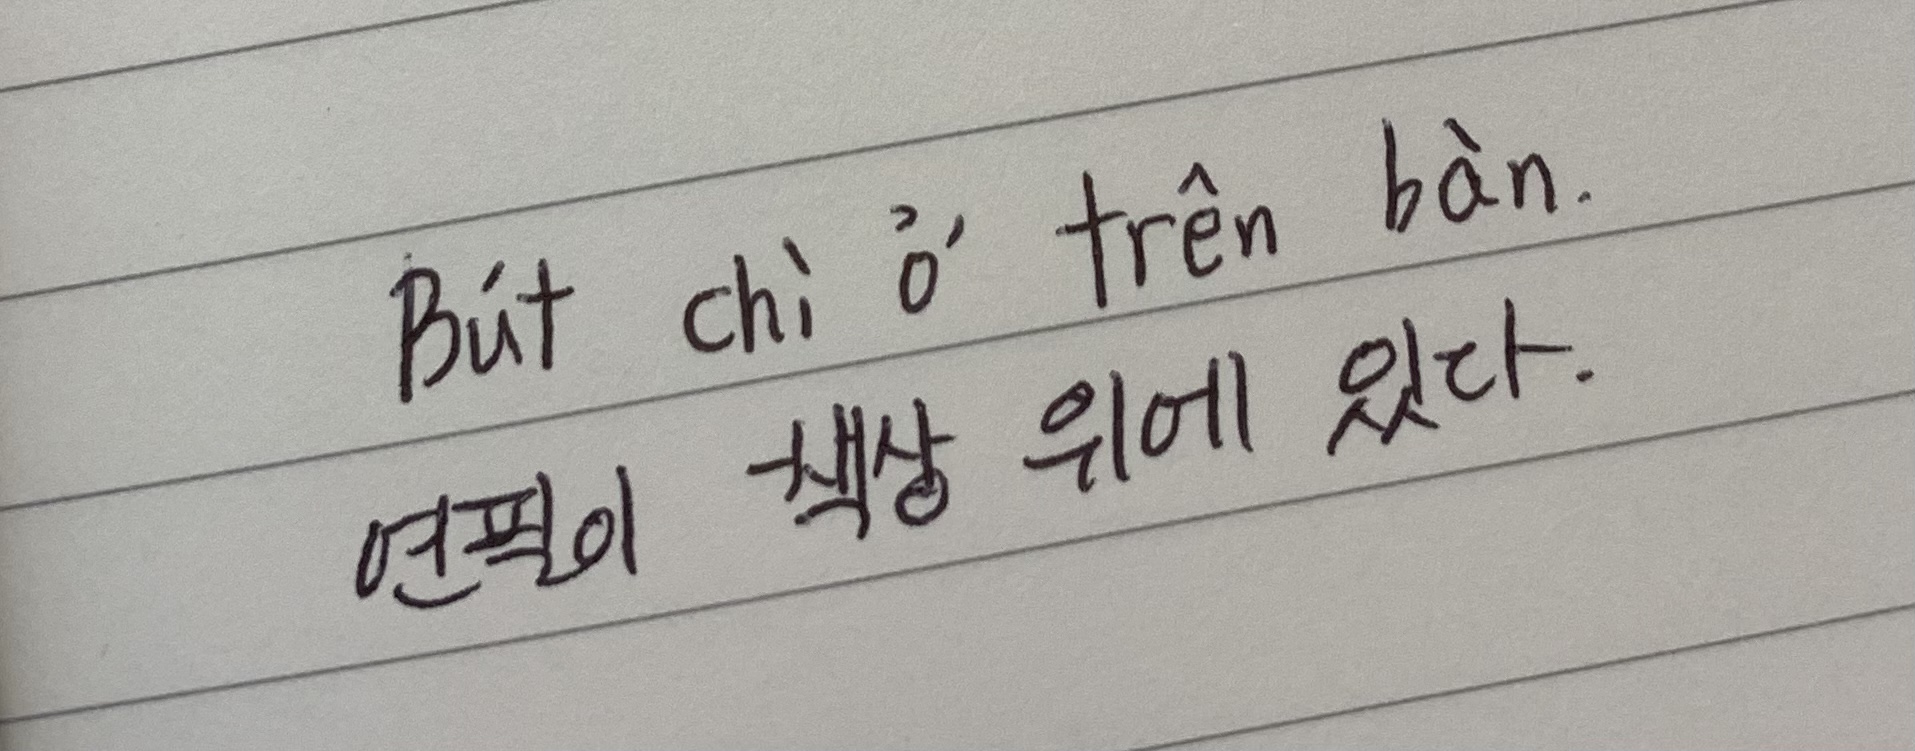 Bút chì ở trên bàn.
연필이 책상 위에 있다.